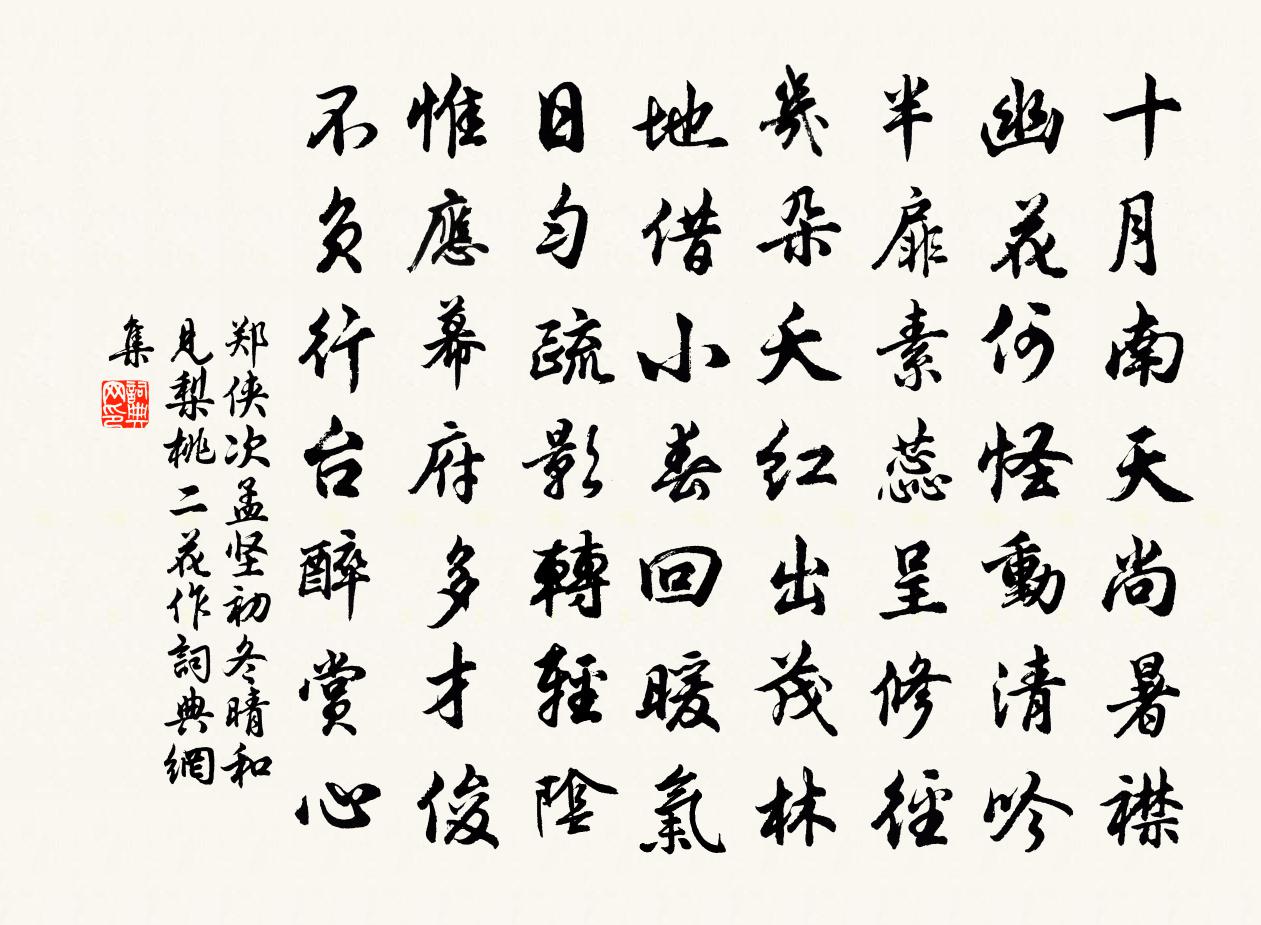 十月南天尚暑襟
幽花何怪動清吟
半扉素蕊呈修徑
幾朵夭红出茂林
地借小春回暖氣
日匀疏影轉輕陰
惟應幕府多才俊
不负行台醉赏心
郑侠次孟坚初冬晴和
見梨桃二花作詞典網
集
詞典网印